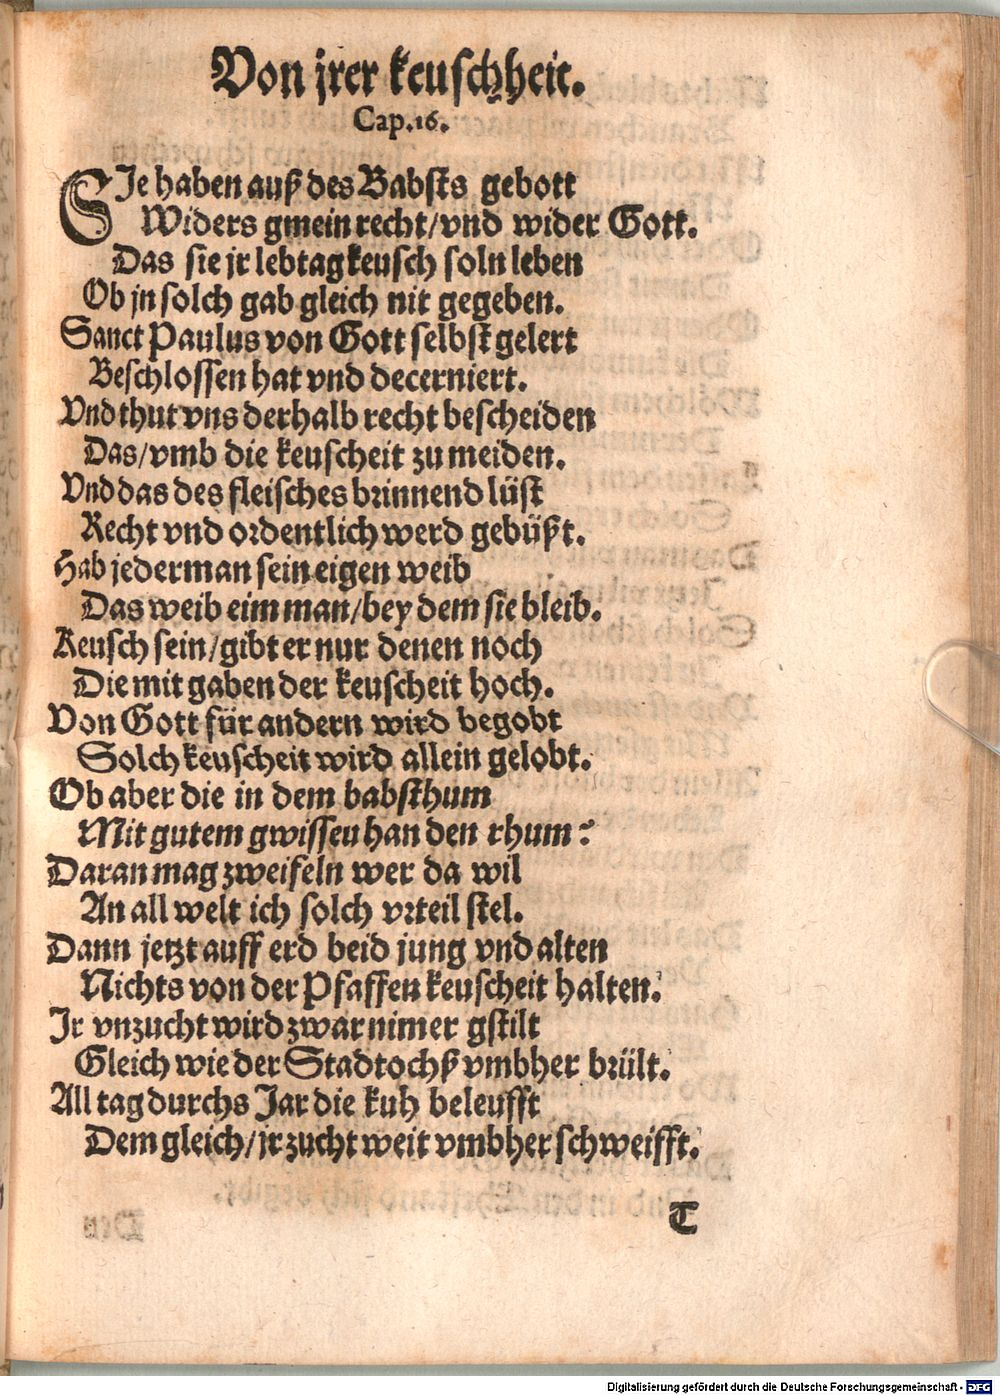 Von jrer keuschheit.
Cap.16.
SJe haben auß des Babsts gebott
Widers gmein recht/vnd wider Gott.
Das sie jr lebtag keusch soln leben
Ob jn solch gab gleich nit gegeben.
Sanct Paulus von Gott selbst gelert
Beschlossen hat vnd decerniert.
Vnd thut vns derhalb recht bescheiden
Das/vmb die keuscheit zu meiden.
Vnd das des fleisches brinnend lüst
Recht vnd ordentlich werd gebüßt.
Hab jederman sein eigen weib
Das weib eim man/bey dem sie bleib.
Keusch sein/gibt er nur denen noch
Die mit gaben der keuscheit hoch.
Von Gott für andern wird begobt
Solch keuscheit wird allein gelobt.
Ob aber die in dem babsthum
Mit gutem gwissen han den rhum?
Daran mag zweifeln wer da wil
An all welt ich solch vrteil stel.
Dann jetzt auff erd beid jung vnd alten
Nichts von der Pfaffen keuscheit halten.
Jr vnzucht wird zwar nimer gstilt
Gleich wie der Stadtochß vmbher brült.
All tag durchs Jar die kuh beleufft
Dem gleich/jr zucht weit vmbher schweifft.
T
Digitalisierung gefördert durch die Deutsche Forschungsgemeinschaft - DFG